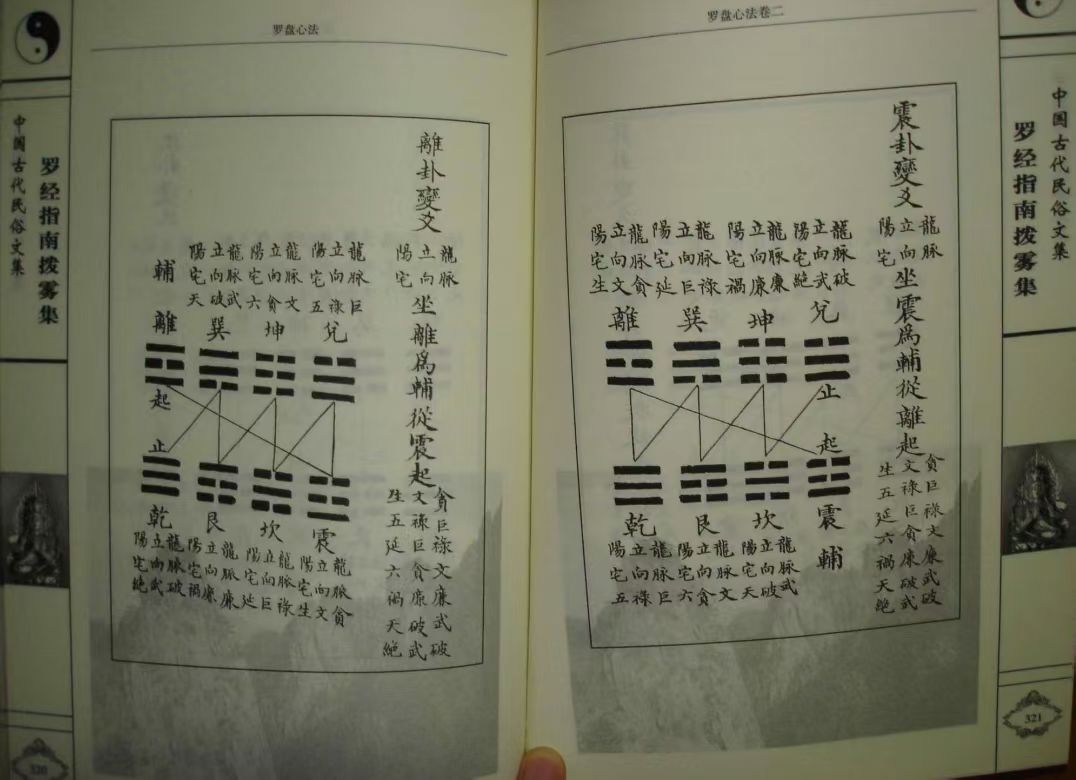 中国古代民俗文集
罗经指南拨雾集
320
罗盘心法
離卦變爻
龍脈
立向
陽宅
坐離爲輔從震起
貪巨祿文廉武破
文祿巨貪廉破武
生五延六禍天絕
龍脈巨
立向祿
陽宅五
兌
龍脈文
立向貪
陽宅六
坤
龍脈武
立向破
陽宅天
巽
輔離
起
止
震
龍脈貪
立向文
陽宅生
坎
龍脈祿
立向巨
陽宅延
艮
龍脈廉
立向廉
陽宅禍
乾
龍脈破
立向武
陽宅絕
罗盘心法卷二
震卦變爻
龍脈
立向
陽宅
坐震爲輔從離起
貪巨祿文廉武破
文祿巨貪廉破武
生五延六禍天絕
龍脈破
立向武
陽宅絕
兌
龍脈廉
立向廉
陽宅禍
坤
龍脈祿
立向巨
陽宅延
巽
龍脈貪
立向文
陽宅生
離
止
起
震輔
坎
龍脈武
立向破
陽宅天
艮
龍脈文
立向貪
陽宅六
乾
龍脈巨
立向祿
陽宅五
中国古代民俗文集
罗经指南拨雾集
321